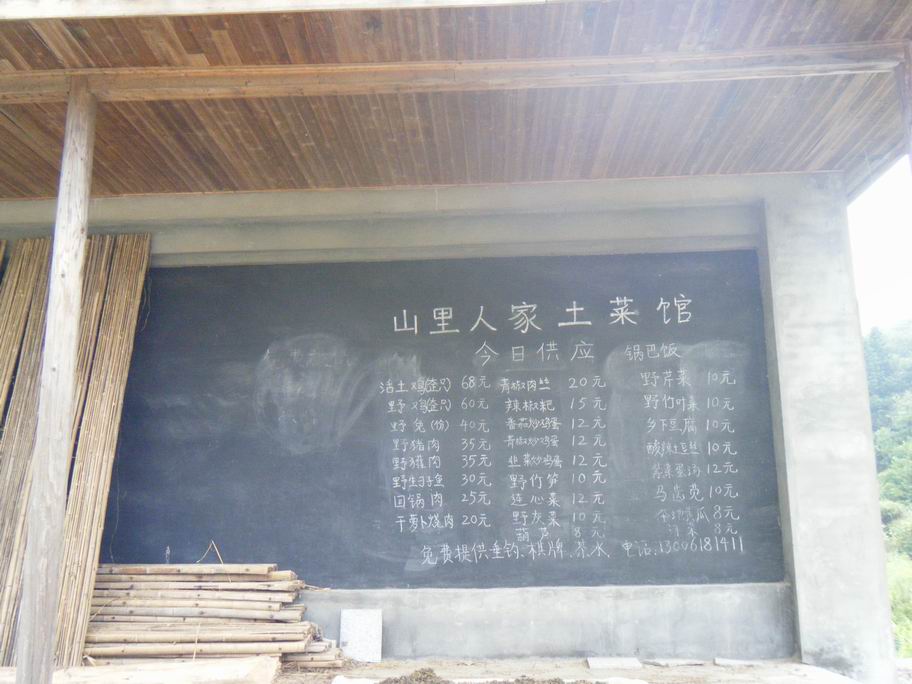 山里人家土菜馆
今日供应 锅巴饭
活土鸡(整只) 68元 青椒肉丝 20元 野芹菜 10元
野鸡(整只) 60元 辣椒粑 15元 野竹叶菜 10元
野兔(份) 40元 番茄炒鸡蛋 12元 乡下豆腐 10元
野猪肉 35元 青椒炒鸡蛋 12元 酸辣土豆丝 10元
野猪肉 35元 韭菜炒鸡蛋 12元 紫菜蛋汤 12元
野生子鱼 30元 野竹笋 10元 马齿苋 10元
回锅肉 25元 连心菜 12元 瓜 8元
干萝卜烧肉 20元 野灰菜 10元 8元
葫芦 8元
免费提供垂钓.棋牌.茶水. 电话:13006181411